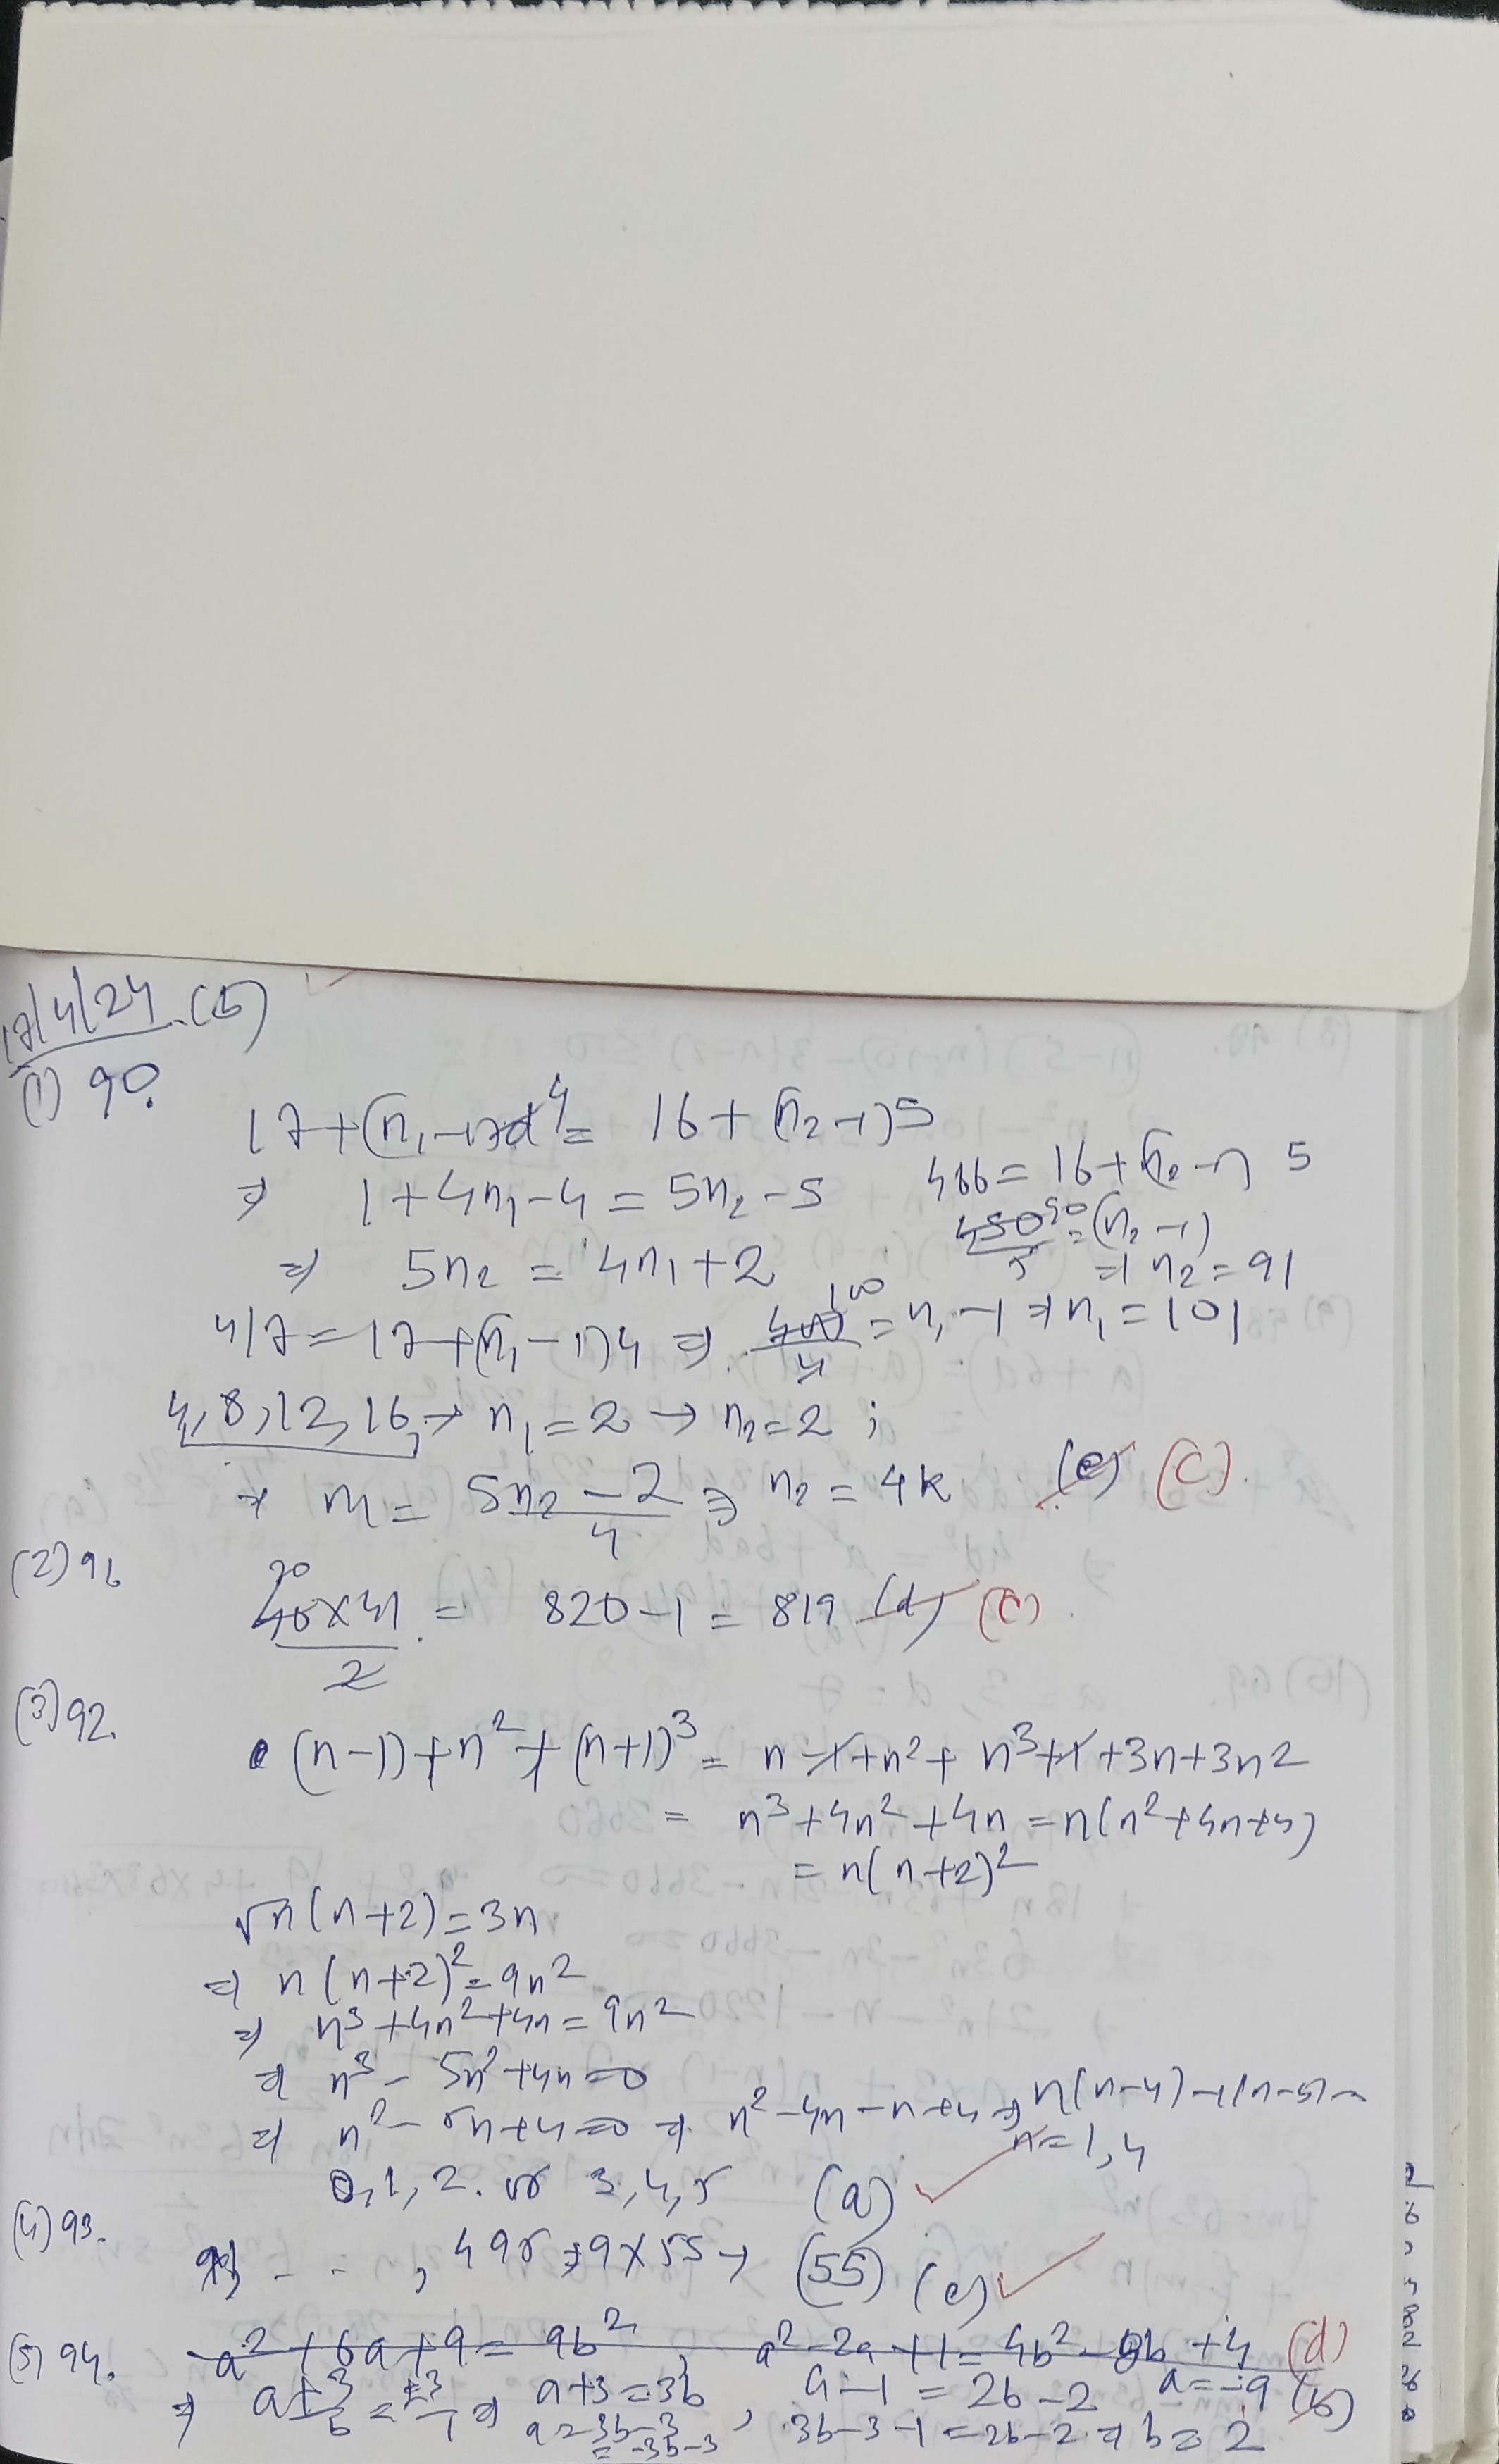 17/4/24 (5)
(1) 90.
17+(n₁-1)4 = 16+(n₂-1)5
⇒ 1+4n₁-4 = 5n₂-5
466 = 16+(n₂-1) 5
450/5 90 = (n₂-1)
⇒ 5n₂ = 4n₁+2
⇒ n₂ = 91
417 = 17+(n₁-1)4 ⇒ 400/4 100 = n₁-1 ⇒ n₁ = 101
4,8,12,16, → n₁=2 → n₂=2 ;
→ n₁ = (5n₂-2)/4 ⇒ n₂ = 4k (e) (c).
(2) 91
(40×41)/2 20 = 820-1 = 819 (d) (c).
(3) 92.
(n-1)+n²+(n+1)³ = n-1+n²+n³+1+3n+3n²
= n³+4n²+4n = n(n²+4n+4)
= n(n+2)²
√n(n+2)=3n
⇒ n(n+2)²=9n²
⇒ n³+4n²+4n=9n²
⇒ n³-5n²+4n=0
⇒ n²-5n+4=0 ⇒ n²-4n-n+4 ⇒ n(n-4)-1(n-
n=1,4
0,1,2. or 3,4,5 (a) ✓
(4) 93.
- - , 495 → 9×55 → (55) (e) ✓
(5) 94.
a²+6a+9 = 9b², a²-2a+1 = 4b²-8b+4 (d)
⇒ (a+3)/b = ±3/1 ⇒ a+3=3b, a-1 = 2b-2 a=-9 (b)
a=3b-3 , 3b-3-1=2b-2 ⇒ b=2
=-3b-3